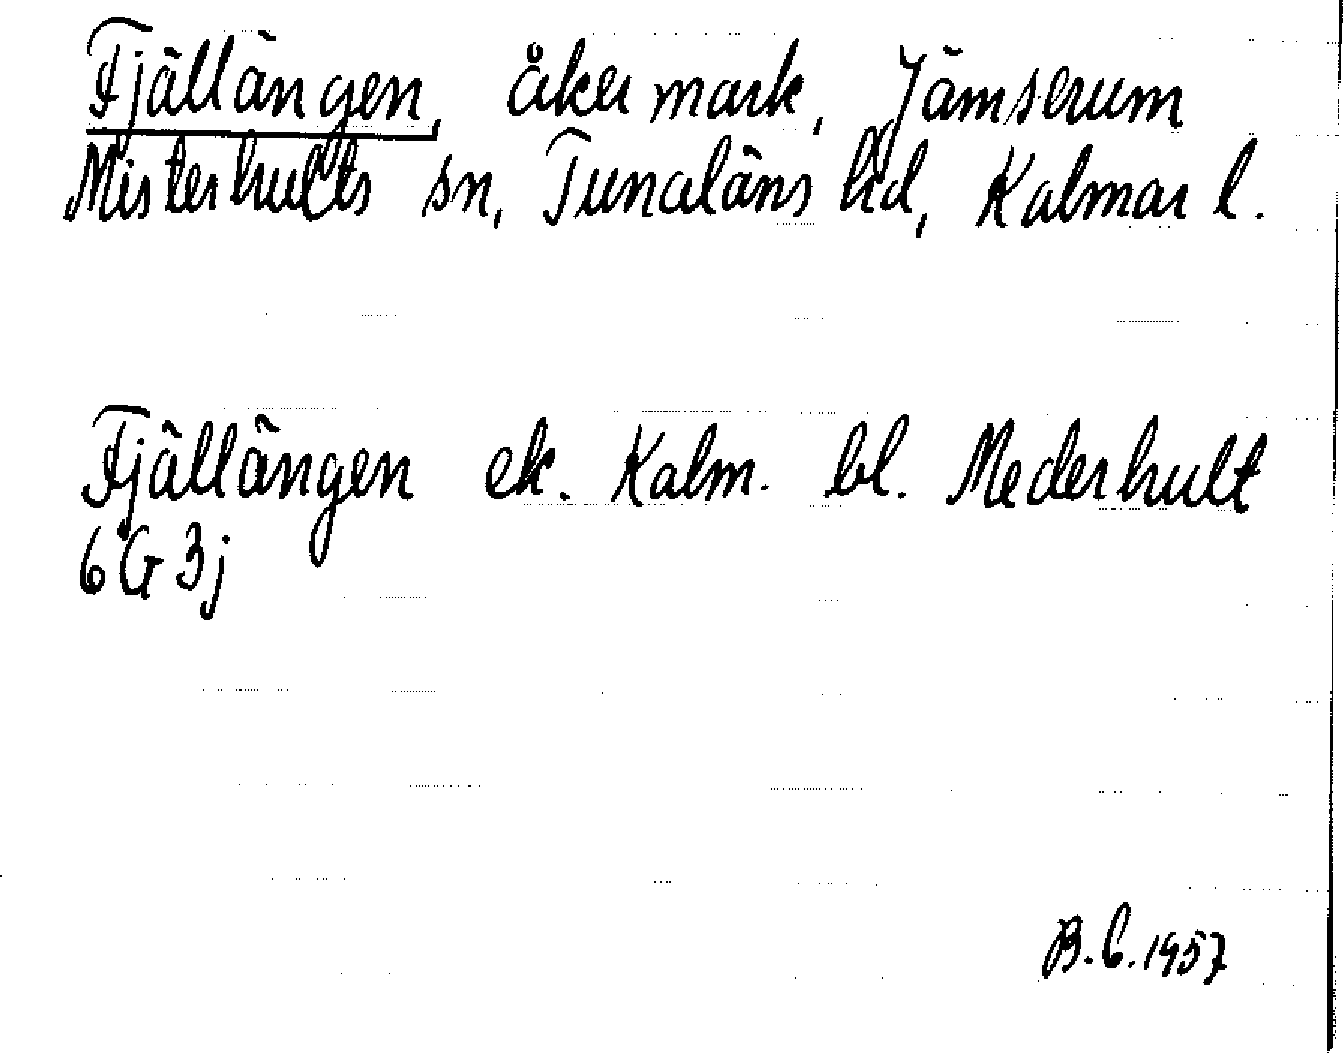 Fjällängen, åkermark, Jämserum
Misterhults sn, Tunaläns hd, Kalmar l.
Fjällängen ek. Kalm. bl. Mederhult
6G3j
B.C.1957